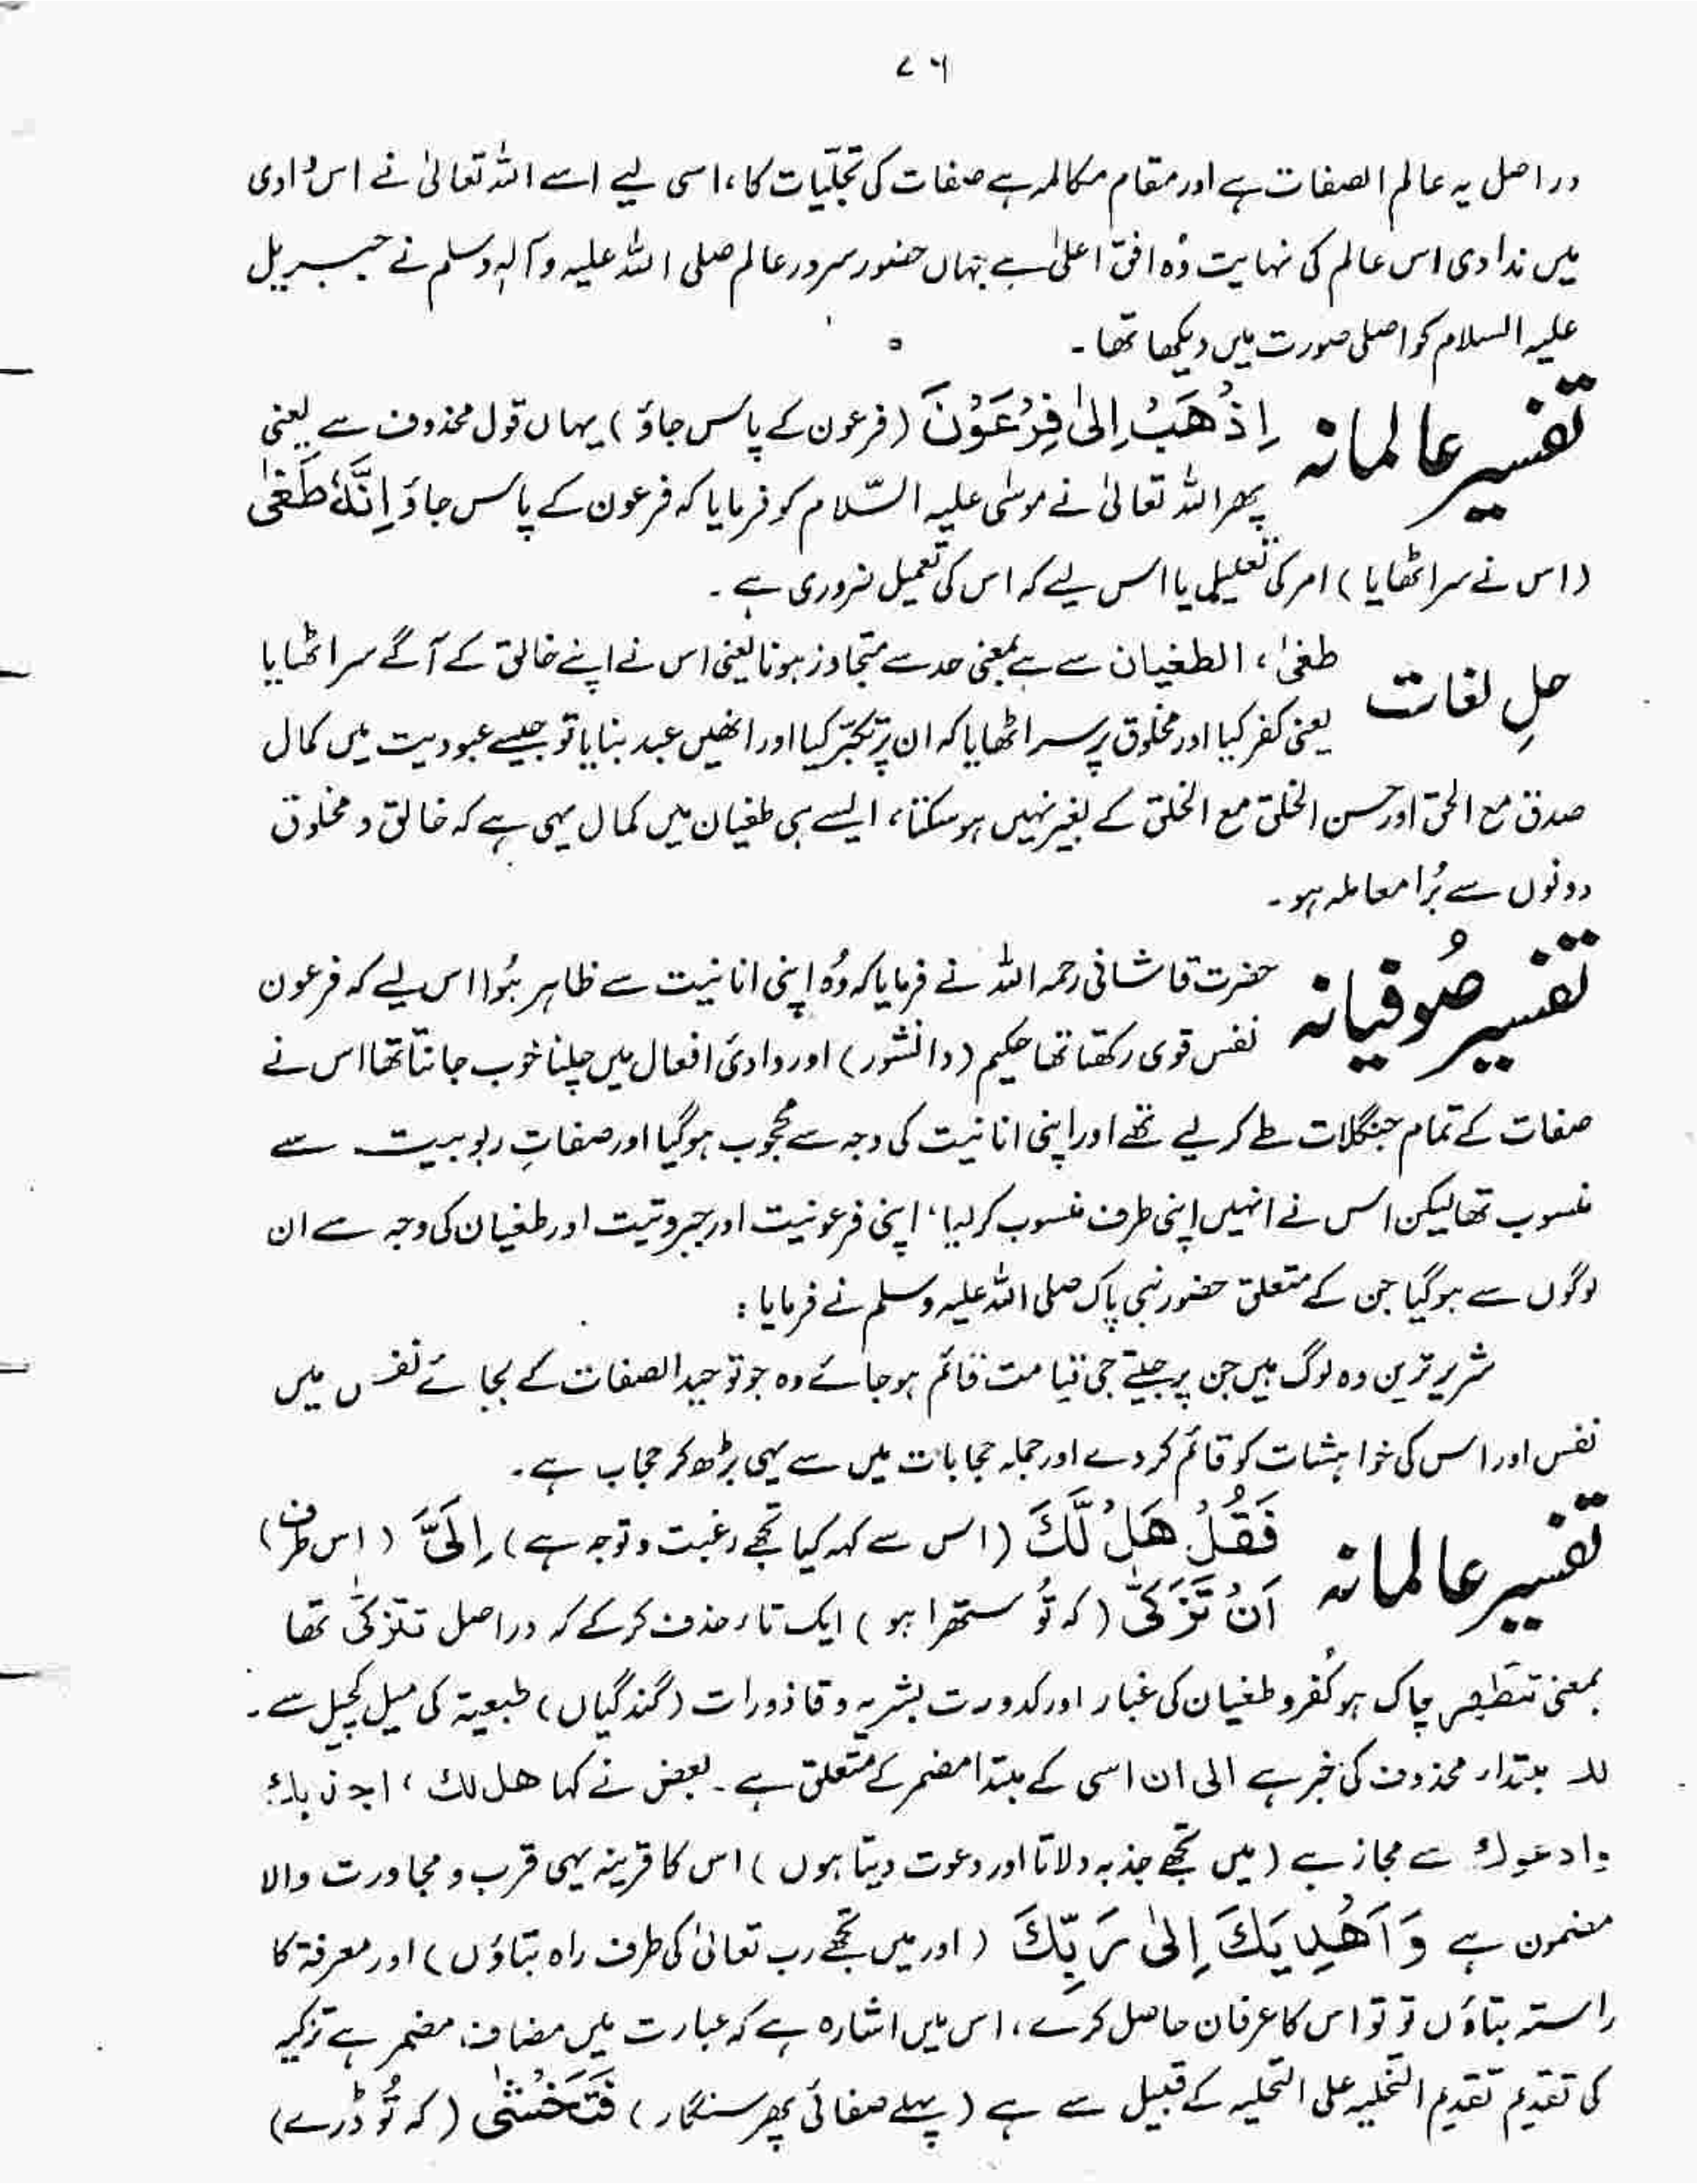 ۷۶
دراصل یہ عالم الصفات ہے اور مقام مکالمہ ہے صفات کی تجلّیات کا، اسی لیے اسے اللہ تعالیٰ نے اس وادی
میں ندا دی اس عالم کی نہایت وُہ افق اعلیٰ ہے جہاں حضور سرور عالم صلی اللہ علیہ وآلہٖ وسلم نے جبریل
علیہ السلام کو اصلی صورت میں دیکھا تھا۔
تفسیر عالمانہ اِذْهَبْ اِلىٰ فِرْعَوْنَ (فرعون کے پاس جاؤ) یہاں قول محذوف ہے یعنی
پھر اللہ تعالیٰ نے موسٰی علیہ السّلام کو فرمایا کہ فرعون کے پاس جاؤ اِنَّهٗ طَغٰى
(اس نے سر اٹھایا) امر کی تعلیل یا اس لیے کہ اس کی تعمیل ضروری ہے۔
حلِ لغات طغیٰ، الطغیان سے ہے بمعنی حد سے متجاوز ہونا یعنی اس نے اپنے خالق کے آگے سر اٹھایا
یعنی کفر کیا اور مخلوق پر سر اٹھایا کہ ان پر تکبّر کیا اور انھیں عبد بنایا تو جیسے عبودیت میں کمال
صدق مع الحق اور حسن الخلق مع الخلق کے بغیر نہیں ہو سکتا، ایسے ہی طغیان میں کمال یہی ہے کہ خالق و مخلوق
دونوں سے بُرا معاملہ ہو۔
تفسیر صُوفیانہ حضرت قاشانی رحمہ اللہ نے فرمایا کہ وُہ اپنی انانیت سے ظاہر ہُوا اس لیے کہ فرعون
نفس قوی رکھتا تھا حکیم (دانشور) اور وادیٔ افعال میں چلنا خوب جانتا تھا اس نے
صفات کے تمام جنگلات طے کر لیے تھے اور اپنی انانیت کی وجہ سے محجوب ہو گیا اور صفاتِ ربوبیت سے
منسوب تھا لیکن اس نے انہیں اپنی طرف منسوب کر لیا، اپنی فرعونیت اور جبروتیت اور طغیان کی وجہ سے ان
لوگوں سے ہو گیا جن کے متعلق حضور نبی پاک صلی اللہ علیہ وسلم نے فرمایا:
شریر ترین وہ لوگ ہیں جن پر جیتے جی قیامت قائم ہو جائے وہ جو توحید الصفات کے بجائے نفس میں
نفس اور اس کی خواہشات کو قائم کر دے اور جملہ حجابات میں سے یہی بڑھ کر حجاب ہے۔
تفسیر عالمانہ فَقُلْ هَلْ لَّكَ (اس سے کہہ کیا تجھے رغبت و توجہ ہے) اِلٰىٓ (اس طرف)
اَنْ تَزَكّٰى (کہ تُو ستھرا ہو) ایک تاء حذف کر کے کہ دراصل تتزکّٰی تھا
بمعنی تتطہر پاک ہو کُفر و طغیان کی غبار اور کدورت بشریہ و قاذورات (گندگیاں) طبعیۃ کی میل کچیل سے۔
لك مبتداء محذوف کی خبر ہے الی ان اسی کے مبتدا مضمر کے متعلق ہے۔ بعض نے کہا هل لك، اجذبك
وادعوك سے مجاز ہے (میں تجھے جذبہ دلاتا اور دعوت دیتا ہوں) اس کا قرینہ یہی قرب و مجاورت والا
مضمون ہے وَاَهْدِيَكَ اِلىٰ رَبِّكَ (اور میں تجھے رب تعالیٰ کی طرف راہ بتاؤں) اور معرفۃ کا
راستہ بتاؤں تو تو اس کا عرفان حاصل کرے، اس میں اشارہ ہے کہ عبارت میں مضاف مضمر ہے تزکیہ
کی تقدیم تقدیم التخلیہ علی التحلیہ کے قبیل سے ہے (پہلے صفائی پھر سنگار) فَتَخْشٰى (کہ تُو ڈرے)